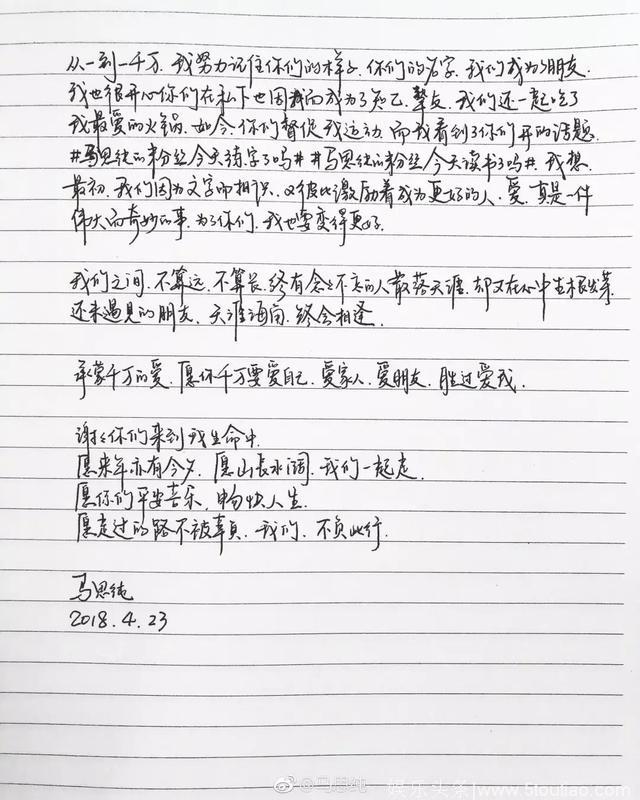 从一到一千万，我努力记住你们的样子，你们的名字，我们成为了朋友，
我也很开心你们在私下也因我而成为了知己，挚友，我们还一起吃了
我最爱的火锅，如今，你们督促我运动，而我看到了你们开的话题
#马思纯的粉丝今天练字了吗##马思纯的粉丝今天读书了吗#，我想，
最初，我们因为文字而相识，又彼此激励着成为更好的人，爱，真是一件
伟大而奇妙的事，为了你们，我也要变得更好。
我们之间，不算远，不算长，终有念念不忘的人散落天涯，却又在心中生根发芽，
还未遇见的朋友，天涯海角，终会相逢。
承蒙千万的爱，愿你千万要爱自己，爱家人，爱朋友，胜过爱我。
谢谢你们来到我生命中，
愿来年亦有今夕，愿山长水阔，我们一起走，
愿你们平安喜乐，畅快人生，
愿走过的路不被辜负，我们，不负此行。
马思纯
2018.4.23
@马思纯
娱乐头条/www.51touliao.com